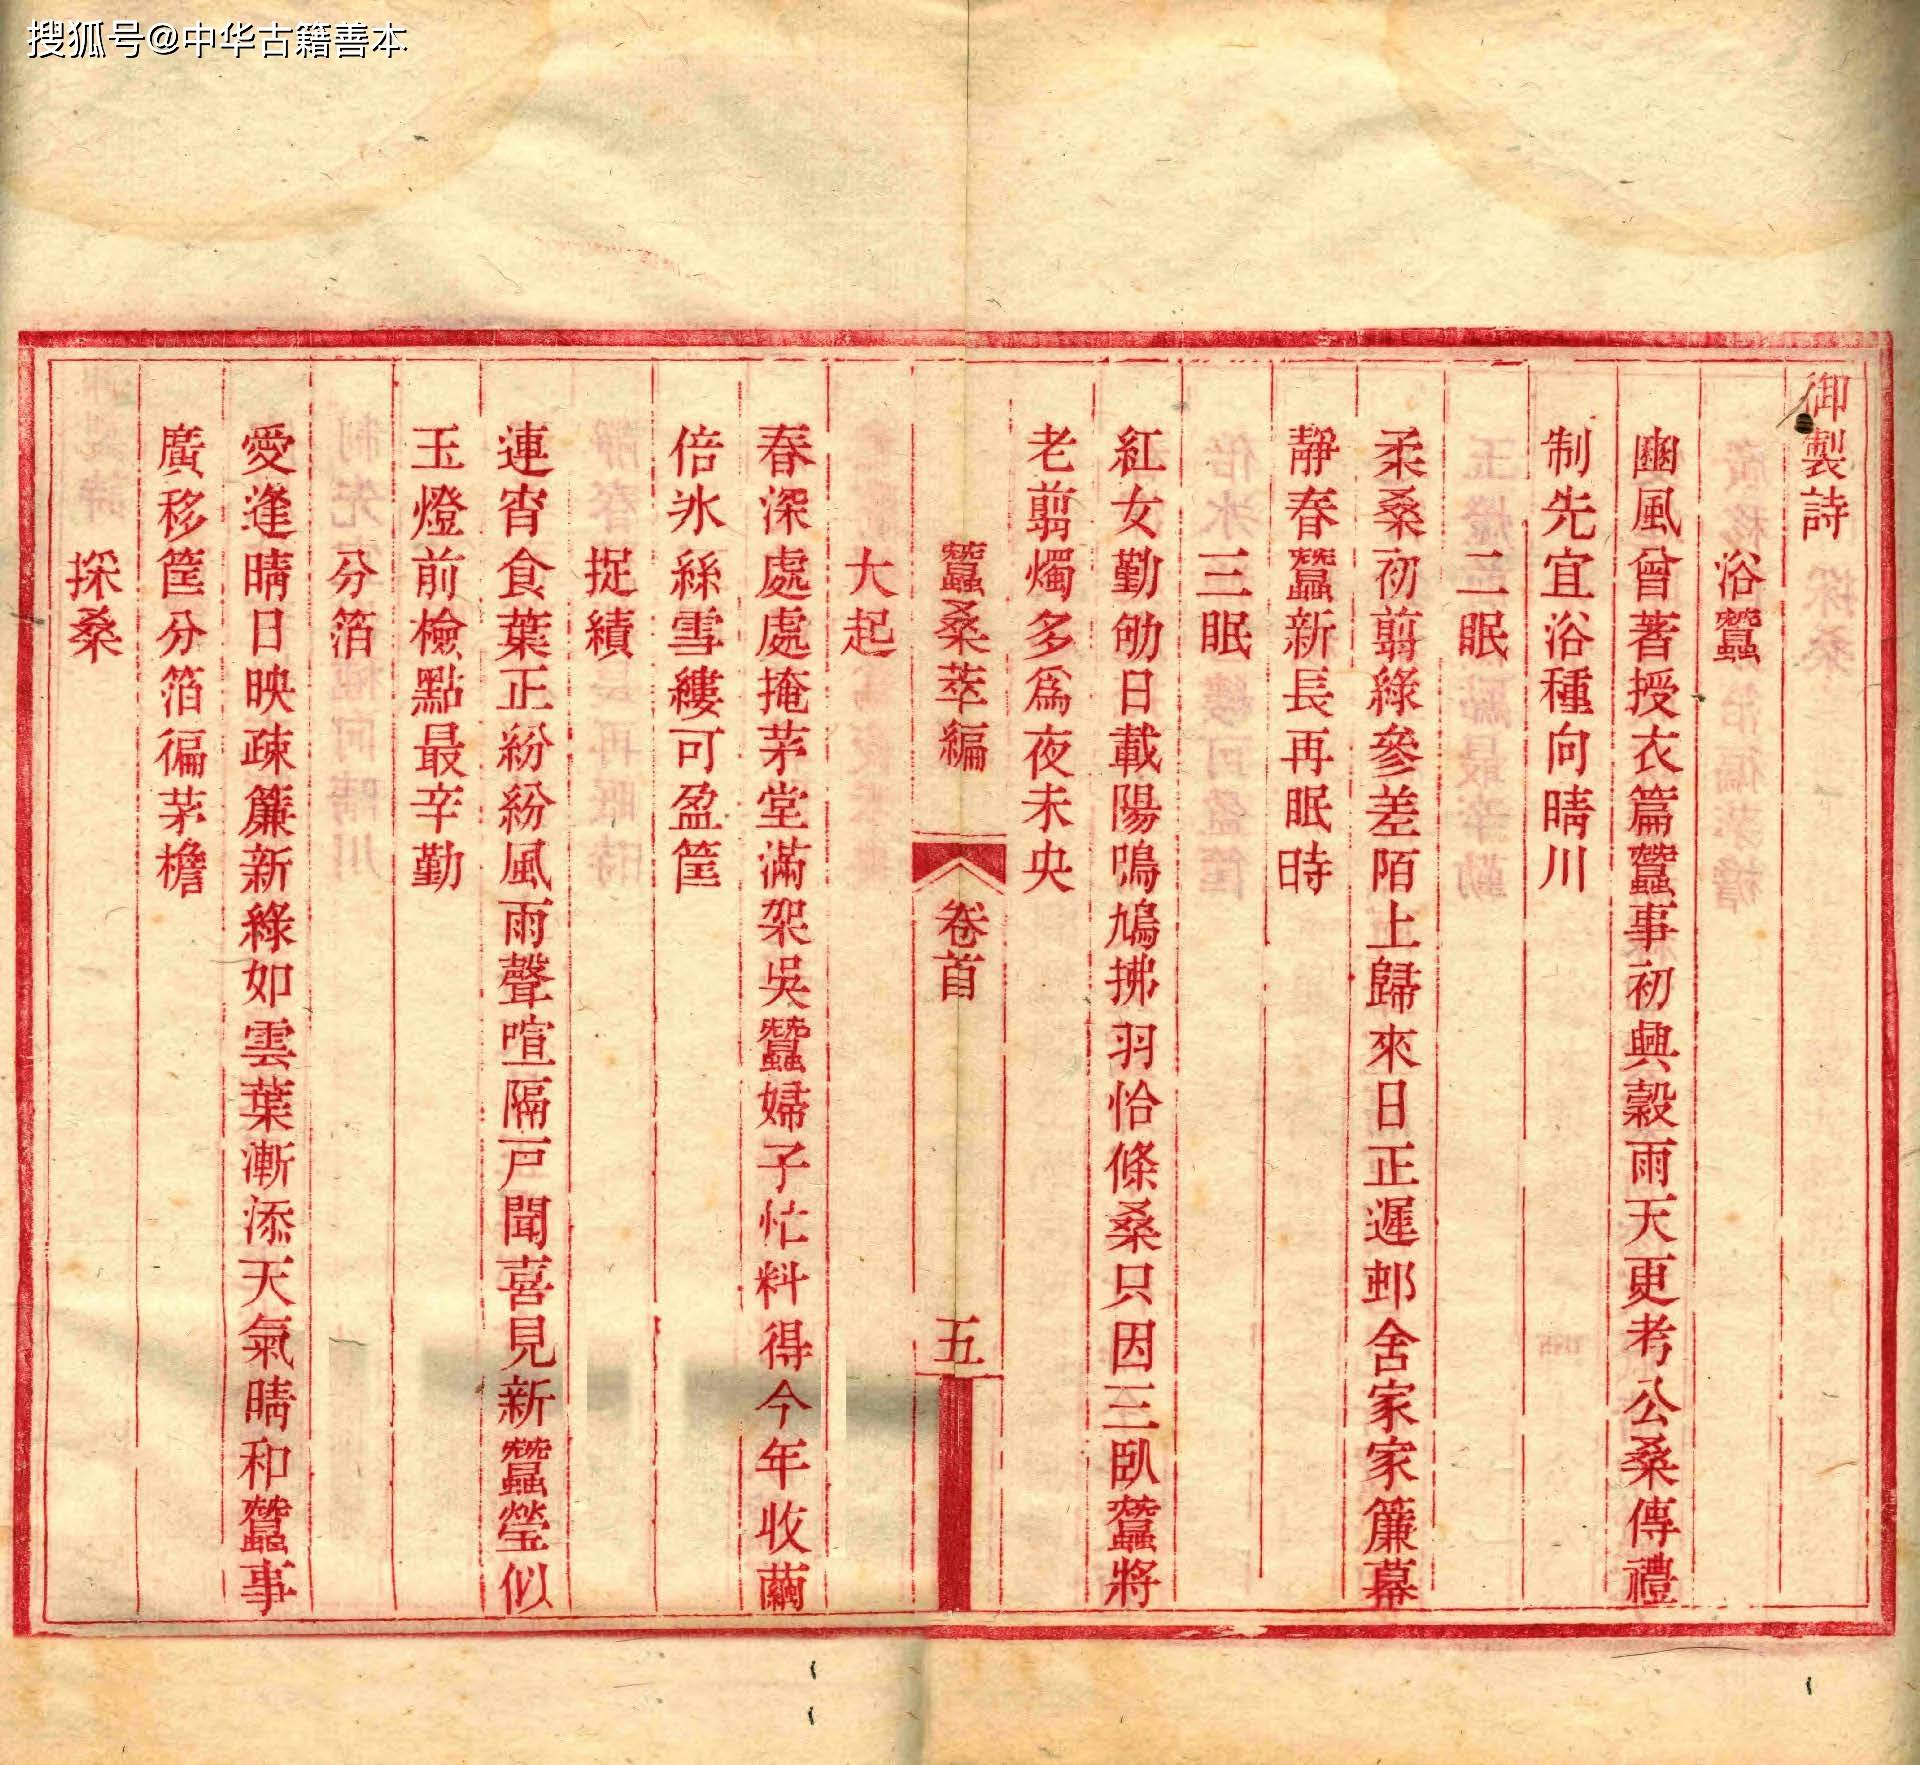 搜狐号@中华古籍善本
御製詩
浴蠶
豳風曾著授衣篇蠶事初興穀雨天更考公桑傳禮
制先宜浴種向晴川
二眠
柔桑初剪綠參差陌上歸來日正遲邨舍家家簾幕
靜春蠶新長再眠時
三眠
紅女勤劬日載陽鳴鳩拂羽恰條桑只因三臥蠶將
老剪燭多爲夜未央
蠶桑萃編
卷首
五
大起
春深處處掩茅堂滿架吳蠶婦子忙料得今年收繭
倍氷絲雪縷可盈筐
捉績
連宵食葉正紛紛風雨聲喧隔戸聞喜見新蠶瑩似
玉燈前檢點最辛勤
分箔
愛逢晴日映疎簾新綠如雲葉漸添天氣晴和蠶事
廣移筐分箔徧茅檐
採桑